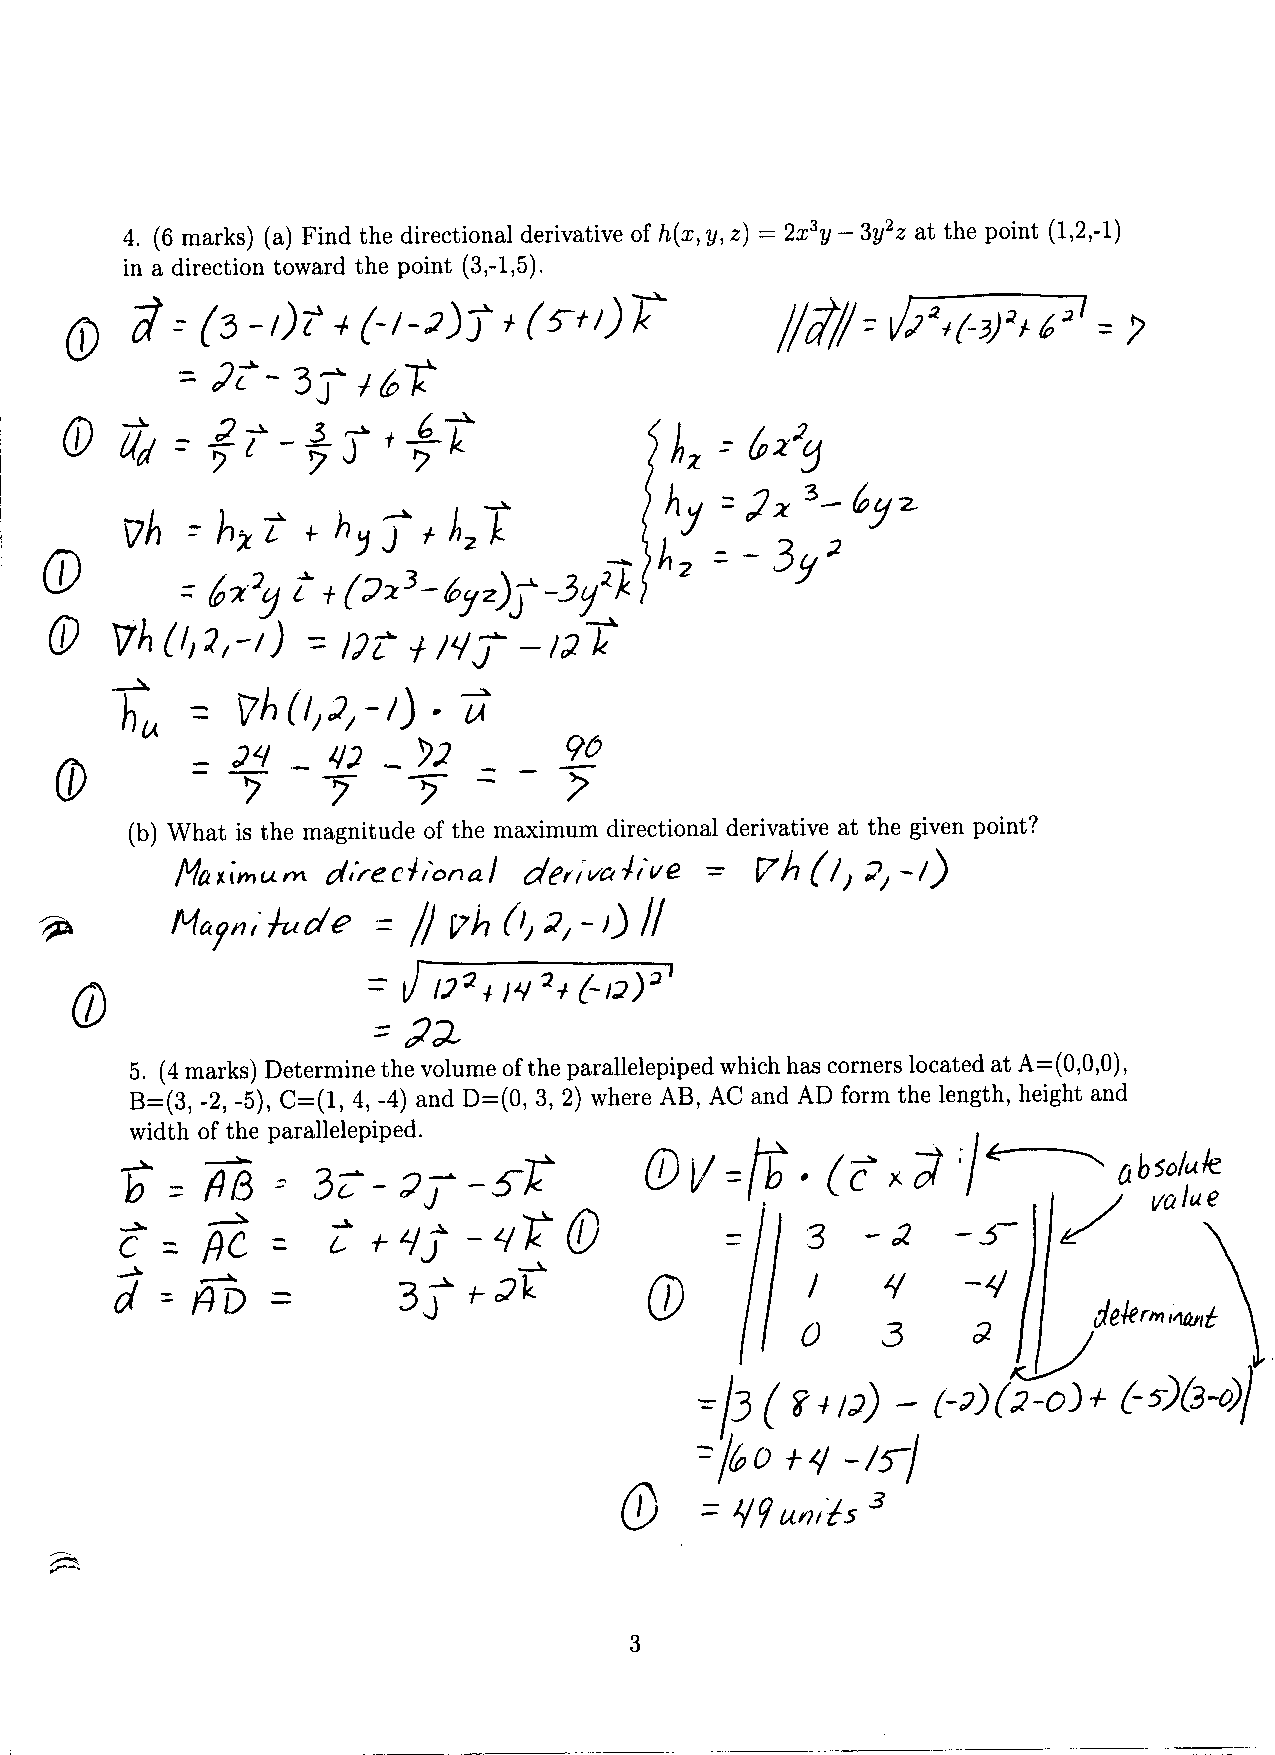 4. (6 marks) (a) Find the directional derivative of h(x, y, z) = 2x³y − 3y²z at the point (1,2,-1)
in a direction toward the point (3,-1,5).
① d⃗ = (3-1)i⃗ + (-1-2)j⃗ + (5+1)k⃗    ||d⃗|| = √(2²+(-3)²+6²) = 7
= 2i⃗ - 3j⃗ + 6k⃗
① u⃗_d = 2/7 i⃗ - 3/7 j⃗ + 6/7 k⃗    { h_x = 6x²y
h_y = 2x³ - 6yz
∇h = h_x i⃗ + h_y j⃗ + h_z k⃗
h_z = - 3y²
① = 6x²y i⃗ + (2x³ - 6yz)j⃗ - 3y²k⃗
① ∇h(1,2,-1) = 12i⃗ + 14j⃗ - 12k⃗
h⃗_u = ∇h(1,2,-1) · u⃗
① = 24/7 - 42/7 - 72/7 = - 90/7
(b) What is the magnitude of the maximum directional derivative at the given point?
Maximum directional derivative = ∇h(1,2,-1)
Magnitude = ||∇h(1,2,-1)||
① = √(12²+14²+(-12)²)
= 22
5. (4 marks) Determine the volume of the parallelepiped which has corners located at A=(0,0,0),
B=(3, -2, -5), C=(1, 4, -4) and D=(0, 3, 2) where AB, AC and AD form the length, height and
width of the parallelepiped.
b⃗ = AB⃗ = 3i⃗ - 2j⃗ - 5k⃗
c⃗ = AC⃗ = i⃗ + 4j⃗ - 4k⃗ ①
d⃗ = AD⃗ = 3j⃗ + 2k⃗
① V = |b⃗ · (c⃗ × d⃗ | absolute
value
= || 3 -2 -5 ||
① 1 4 -4
0 3 2
determinant
= |3(8+12) - (-2)(2-0) + (-5)(3-0)|
= |60 + 4 - 15|
① = 49 units³
3